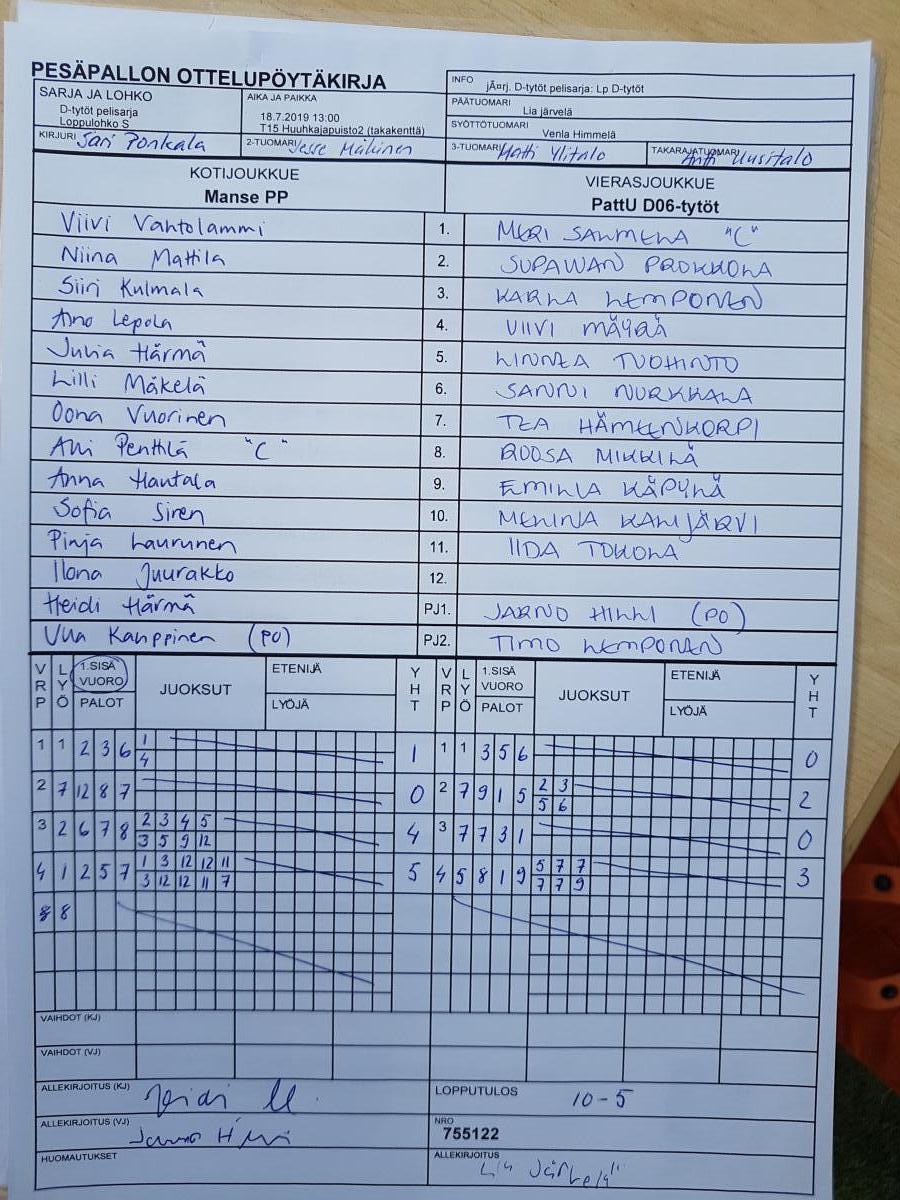 PESÄPALLON OTTELUPÖYTÄKIRJA
SARJA JA LOHKO
D-tytöt pelisarja
Loppulohko S
AIKA JA PAIKKA
18.7.2019 13:00
T15 Huuhkajapuisto2 (takakenttä)
INFO jÃ¤rj. D-tytöt pelisarja: Lp D-tytöt
PÄÄTUOMARI Lia järvelä
SYÖTTÖTUOMARI Venla Himmelä
KIRJURI Sari Ponkala
2-TUOMARI Jesse Mäkinen
3-TUOMARI Matti Ylitalo
TAKARAJATUOMARI Antti Uusitalo
KOTIJOUKKUE
Manse PP
VIERASJOUKKUE
PattU D06-tytöt
Viivi Vahtolammi 1. MERI SALMELA "C"
Niina Mattila 2. SUPAWAN PROKKOLA
Siiri Kulmala 3. KARLA LEMPONEN
Aino Lepola 4. VIIVI MÄYRÄ
Julia Härmä 5. LINNEA TUOHINTO
Lilli Mäkelä 6. SANNI NURKKALA
Oona Vuorinen 7. TEA HÄMEENKORPI
Alli Penttilä "C" 8. ROOSA MIKKILÄ
Anna Hautala 9. EMILIA KÄPYLÄ
Sofia Siren 10. MELINA KAMIJÄRVI
Pinja Laurunen 11. IIDA TOKOLA
Ilona Juurakko 12.
Heidi Härmä PJ1. JARNO HILLI (PO)
Ulla Kauppinen (PO) PJ2. TIMO LEMPONEN
VRP LYÖ 1.SISÄ VUORO PALOT JUOKSUT ETENIJÄ LYÖJÄ YHT VRP LYÖ 1.SISÄ VUORO PALOT JUOKSUT ETENIJÄ LYÖJÄ YHT
1 1 2 3 6 1 1 1 1 3 5 6 0
4
2 7 12 8 7 0 2 7 9 1 5 2 3 2
5 6
3 2 6 7 8 2 3 4 5 4 3 7 7 3 1 0
3 5 9 12
4 1 2 5 7 1 3 12 12 11 5 4 5 8 1 9 5 7 7 3
3 12 12 11 7 7 7 9
8 8
VAIHDOT (KJ)
VAIHDOT (VJ)
ALLEKIRJOITUS (KJ)
LOPPUTULOS 10-5
ALLEKIRJOITUS (VJ)
NRO
755122
HUOMAUTUKSET
ALLEKIRJOITUS Lia Järvelä